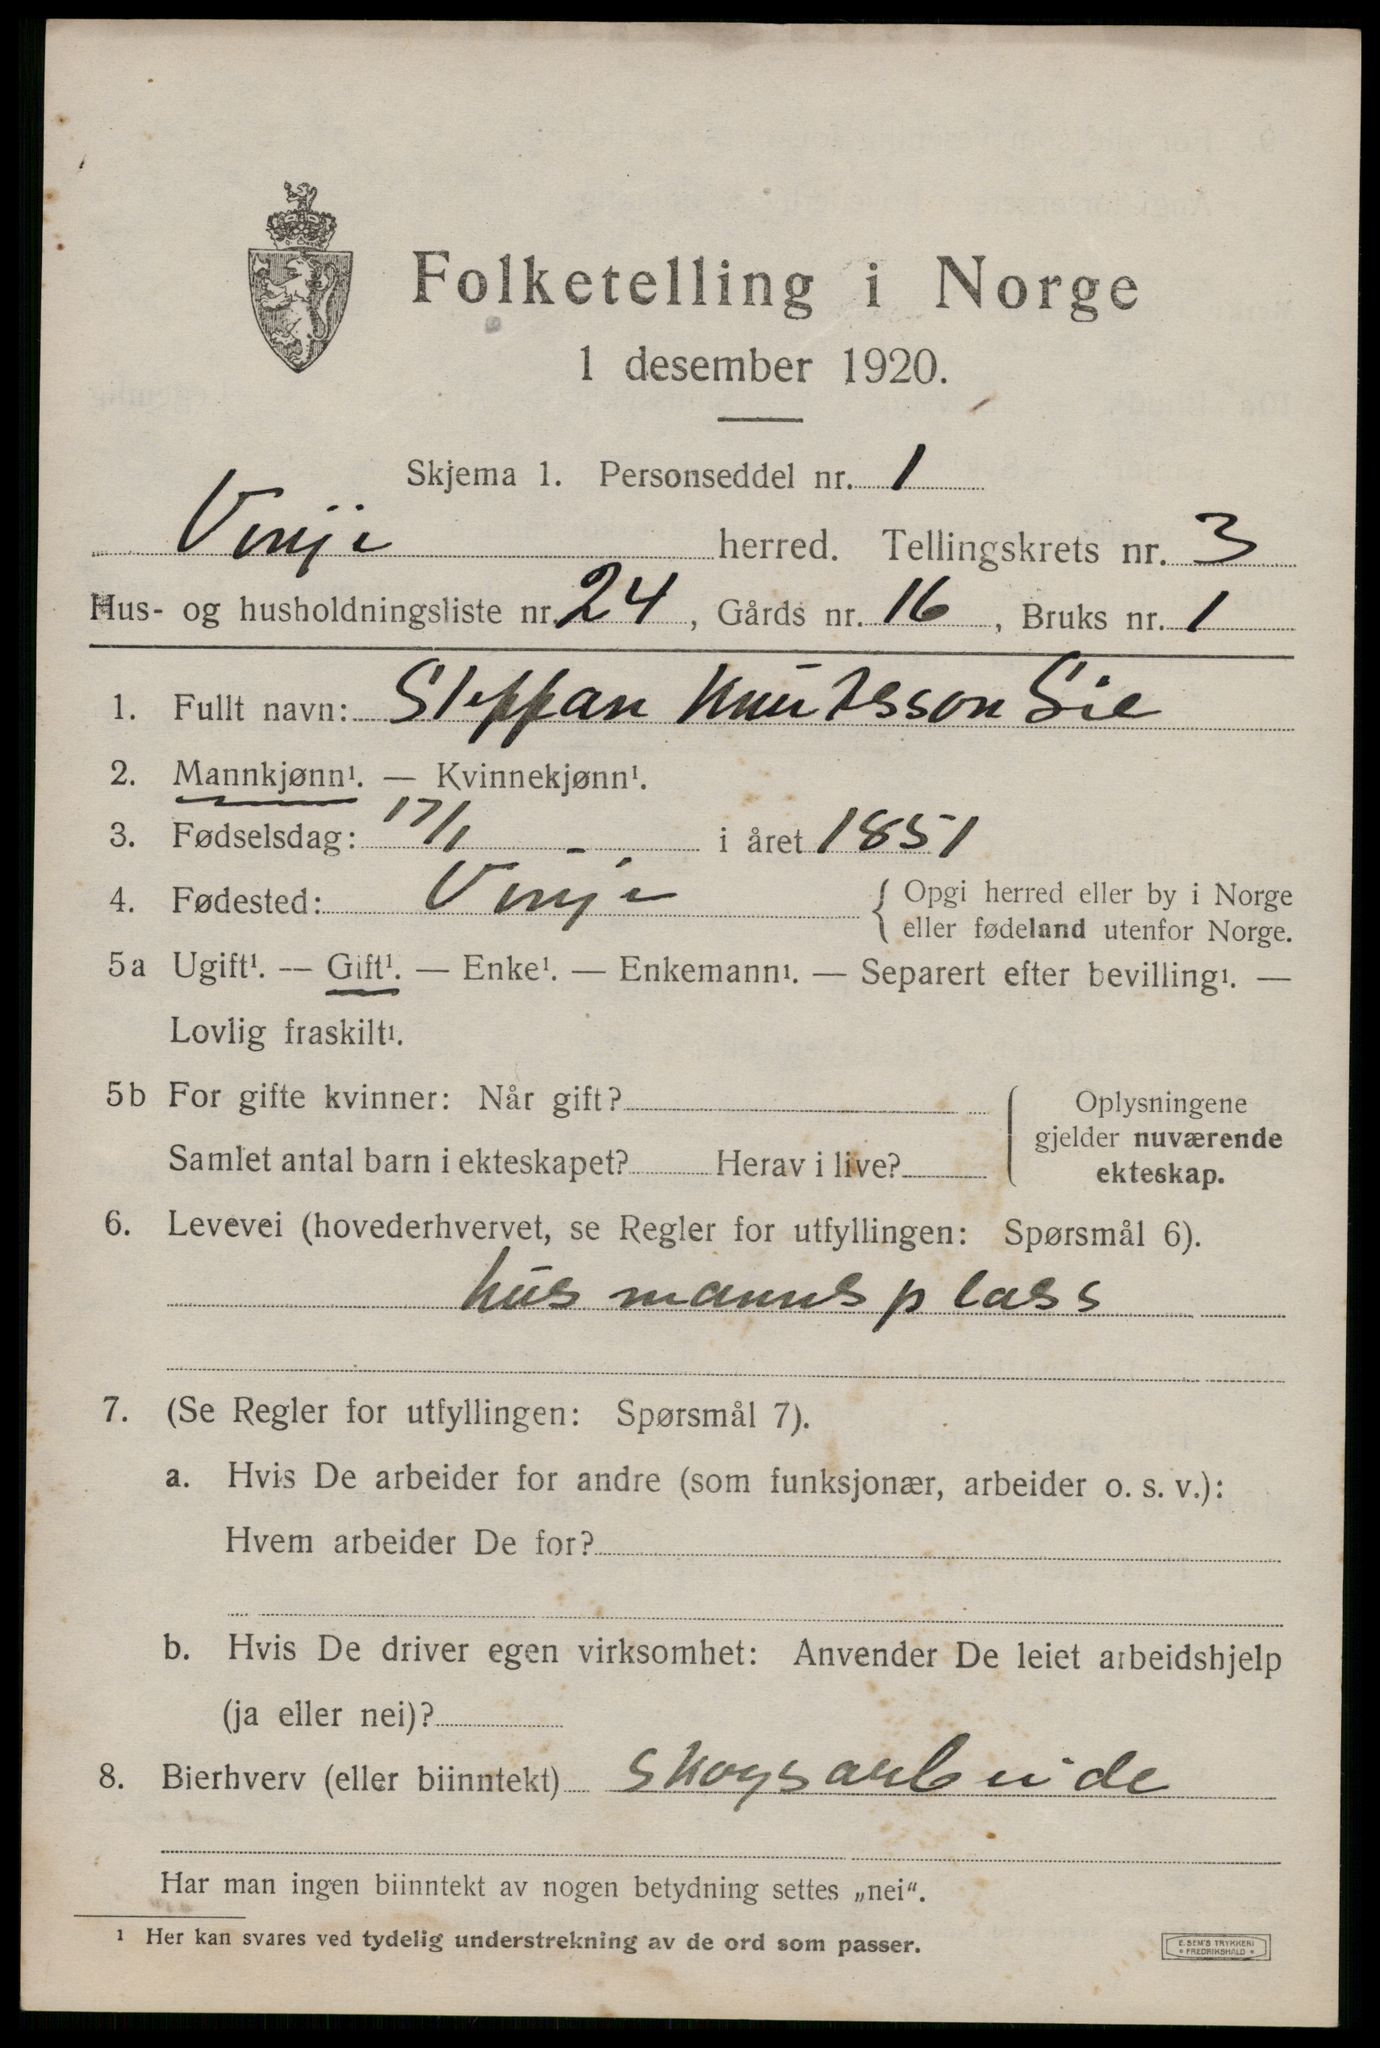 Folketelling i Norge
1 desember 1920.
Skjema 1. Personseddel nr. 1
Vinje herred. Tellingskrets nr. 3
Hus- og husholdningsliste nr. 24, Gårds nr. 16, Bruks nr. 1
1. Fullt navn: Steffan Knutsson Lie
2. Mannkjønn¹. — Kvinnekjønn¹.
3. Fødselsdag: 17/1 i året 1851
4. Fødested: Vinje { Opgi herred eller by i Norge
eller fødeland utenfor Norge.
5a Ugift¹. — Gift¹. — Enke¹. — Enkemann¹. — Separert efter bevilling¹. —
Lovlig fraskilt¹.
5b For gifte kvinner: Når gift?
Samlet antal barn i ekteskapet? Herav i live?
Oplysningene
gjelder nuværende
ekteskap.
6. Levevei (hovederhvervet, se Regler for utfyllingen: Spørsmål 6).
husmannsplass
7. (Se Regler for utfyllingen: Spørsmål 7).
a. Hvis De arbeider for andre (som funksjonær, arbeider o. s. v.):
Hvem arbeider De for?
b. Hvis De driver egen virksomhet: Anvender De leiet arbeidshjelp
(ja eller nei)?
8. Bierhverv (eller biinntekt) skogsarbeide
Har man ingen biinntekt av nogen betydning settes „nei“.
¹ Her kan svares ved tydelig understrekning av de ord som passer.
E. SEM'S TRYKKERI
FREDRIKSHALD